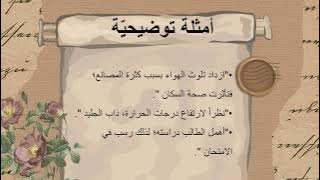 أمثلة توضيحيّة
•"ازداد تلوث الهواء بسبب كثرة المصانع؛
فتأثرت صحة السكان ".
•"نظراً لارتفاع درجات الحرارة، ذاب الجليد ".
•"أهمل الطالب دراسته؛ لذلك رسب في
الامتحان ".